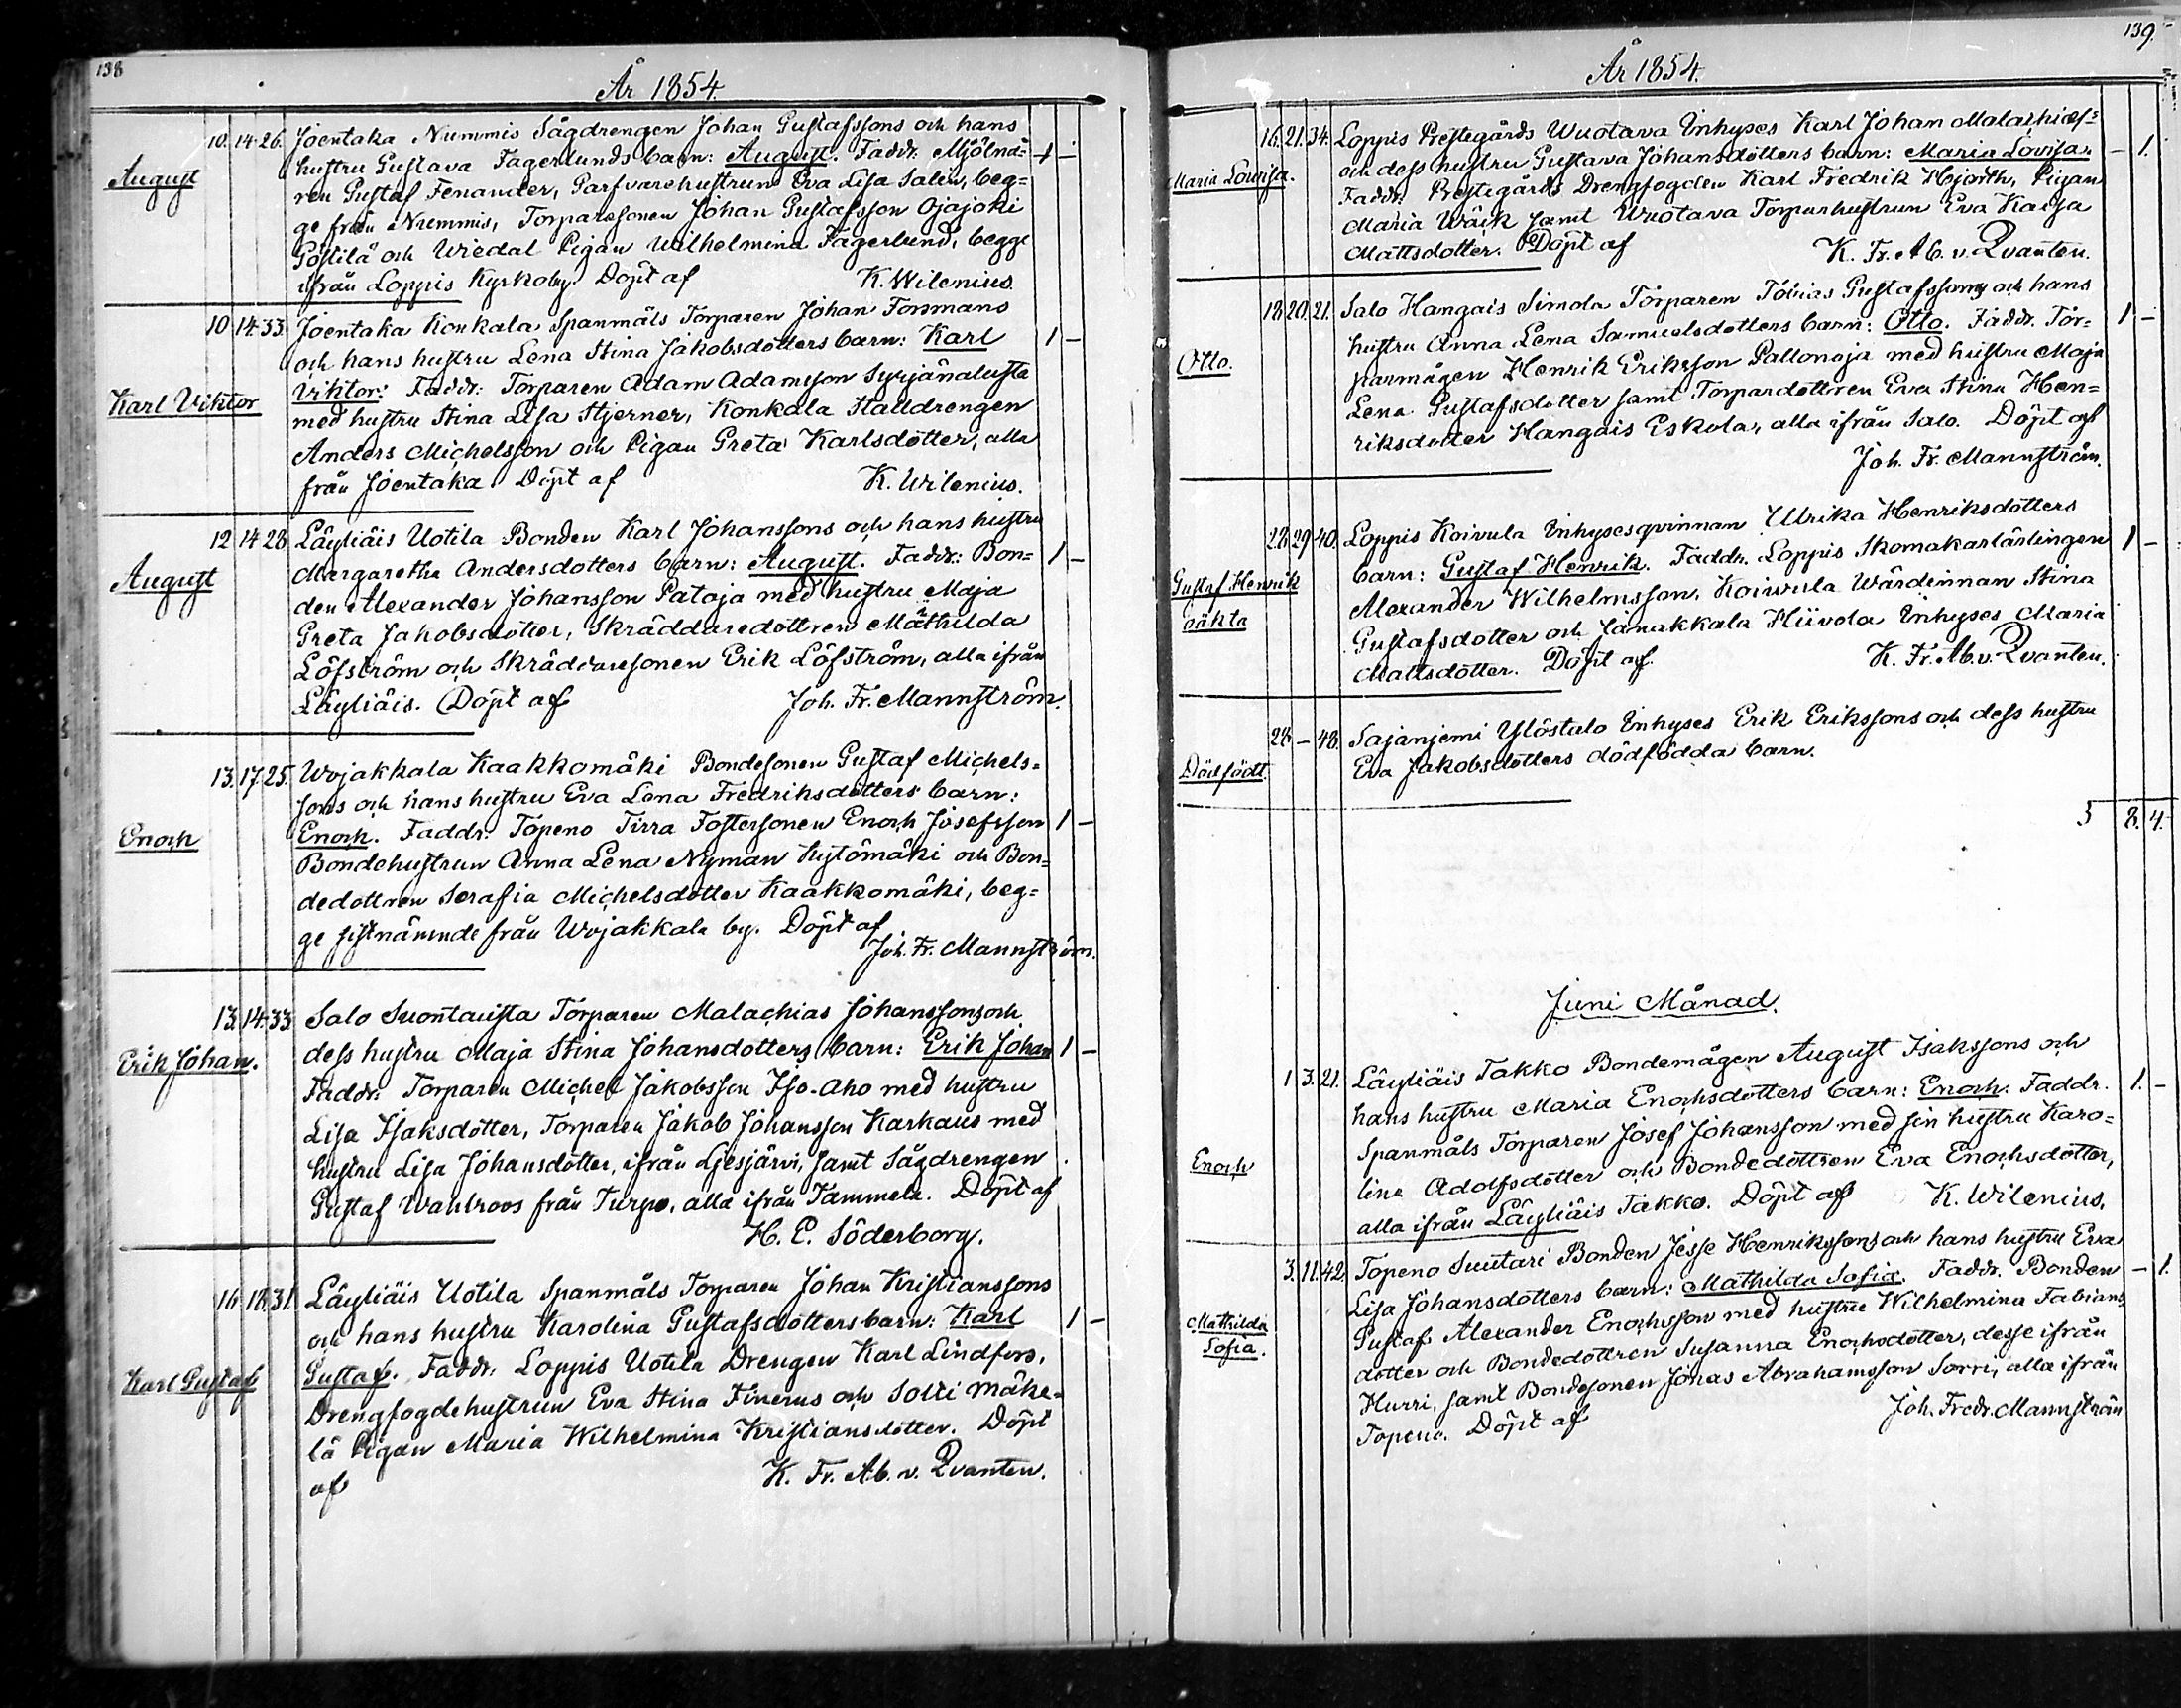 138
År 1854.
August
10. 14. 26. Joentaka Nummis Sågdrengen Johan Gustafssons och hans
hustru Gustava Fagerlunds barn: August. Faddr. Mjölna= 1 —
ren Gustaf Fenander, Garfvarehustrun Eva Lisa Salin, beg=
ge från Nummis, Torparesonen Johan Gustafsson Ojajoki
Göstilä och Wiedal Pigan Wilhelmina Fagerlund, begge
ifrån Loppis Kyrkoby. Döpt af K. Wilenius.
10 14. 33. Joentaka Konkala Spanmåls Torparen Johan Forsmans
och hans hustru Lena Stina Jakobsdotters barn: Karl 1 —
Karl Viktor
Viktor. Faddr: Torparen Adam Adamsson Syrjänalusta
med hustru Stina Lisa Stjerner, Konkala Stalldrengen
Anders Michelsson och Pigan Greta Karlsdotter, alla
från Joentaka. Döpt af K. Wilenius.
12 14 28 Läyliäis Uotila Bonden Karl Johanssons och hans hustru
Margaretha Andersdotters barn: August. Faddr: Bon= 1 —
August
den Alexander Johansson Pataja med hustru Maja
Greta Jakobsdotter, Skräddaredottren Mathilda
Löfström och Skräddaresonen Erik Löfström, alla ifrån
Läyliäis. Döpt af Joh. Fr. Mannström.
13. 17. 25. Wojakkala Kaakkomäki Bondesonen Gustaf Michels=
sons och hans hustru Eva Lena Fredriksdotters barn:
Enoch
Enoch. Faddr. Topeno Tirra Fostersonen Enoch Josefsson 1 —
Bondehustrun Anna Lena Nyman Hytömäki och Bon=
dedottren Serafia Michelsdotter Kaakkomäki, beg=
ge sistnämnde från Wojakkala by. Döpt af
Joh. Fr. Mannström.
13. 14. 33. Salo Suontausta Torparen Malachias Johanssons och
Erik Johan.
dess hustru Maja Stina Johansdotters barn: Erik Johan 1 —
Faddr. Torparen Michel Jakobsson Iso-aho med hustru
Lisa Isaksdotter, Torparen Jakob Johansson Karkaus med
hustru Lisa Johansdotter, ifrån Ljesjärvi, samt Sågdrengen
Gustaf Wahlroos från Turpo, alla ifrån Tammela. Döpt af
H. E. Söderborg.
16. 18. 31. Läyliäis Uotila Spanmåls Torparen Johan Kristianssons
och hans hustru Karolina Gustafsdotters barn: Karl 1 —
Karl Gustaf
Gustaf. Faddr. Loppis Uotila Drengen Karl Lindfors,
Drengfogdehustrun Eva Stina Finerus och Solii Mäke=
lä Pigan Maria Wilhelmina Kristiansdotter. Döpt
af K. Fr. Ab. v. Qvanten.
139.
År 1854.
16. 21. 34. Loppis Prestegårds Wuotava Inhyses Karl Johan Malachiæs=
Maria Lovisa.
och dess hustru Gustava Johansdotters barn: Maria Lovisa. — 1.
Faddr. Prestegårds Drengfogden Karl Fredrik Hjorth, Pigan
Maria Wäck samt Wuotava Torparhustrun Eva Kaisa
Mattsdotter. Döpt af K. Fr. Ab. v. Qvanten.
18 20. 21. Salo Hangais Simola Torparen Tobias Gustafssons och hans
hustru Anna Lena Samuelsdotters barn: Otto. Faddr. Tor= 1 —
Otto.
parmågen Henrik Eriksson Pallonoja med hustru Maja
Lena Gustafsdotter samt Torpardottren Eva Stina Hen=
riksdotter Hangais Eskola, alla ifrån Salo. Döpt af
Joh. Fr. Mannström.
28. 29 40. Loppis Koivula Inhysesqvinnan Ulrika Henriksdotters
barn: Gustaf Henrik. Faddr. Loppis Skomakarlärlingen 1 —
Gustaf Henrik
oäkta
Alexander Wilhelmsson, Koivula Wärdinnan Stina
Gustafsdotter och Janakkala Hiivola Inhyses Maria
Mattsdotter. Döpt af K. Fr. Ab. v. Qvanten.
28 — 48. Sajaniemi Ylöstalo Inhyses Erik Erikssons och dess hustru
Dödfödt.
Eva Jakobsdotters dödfödda barn.
8. 4.
Juni Månad.
1 3. 21. Läyliäis Takko Bondemågen August Isakssons och
hans hustru Maria Enochsdotters barn: Enoch. Faddr. 1. —
Spanmåls Torparen Josef Johansson med sin hustru Karo=
Enoch
lina Adolfsdotter och Bondedottren Eva Enochsdotter,
alla ifrån Läyliäis Takko. Döpt af K. Wilenius.
3. 11. 42. Topeno Suutari Bonden Jesse Henrikssons och hans hustru Eva
Lisa Johansdotters barn: Mathilda Sofia. Faddr. Bonden — 1.
Mathilda
Sofia.
Gustaf Alexander Enochsson med hustru Wilhelmina Fabians
dotter och Bondedottren Susanna Enochsdotter, desse ifrån
Hurri, samt Bondesonen Jonas Abrahamsson Sorri, alla ifrån
Topeno. Döpt af Joh. Fredr. Mannström